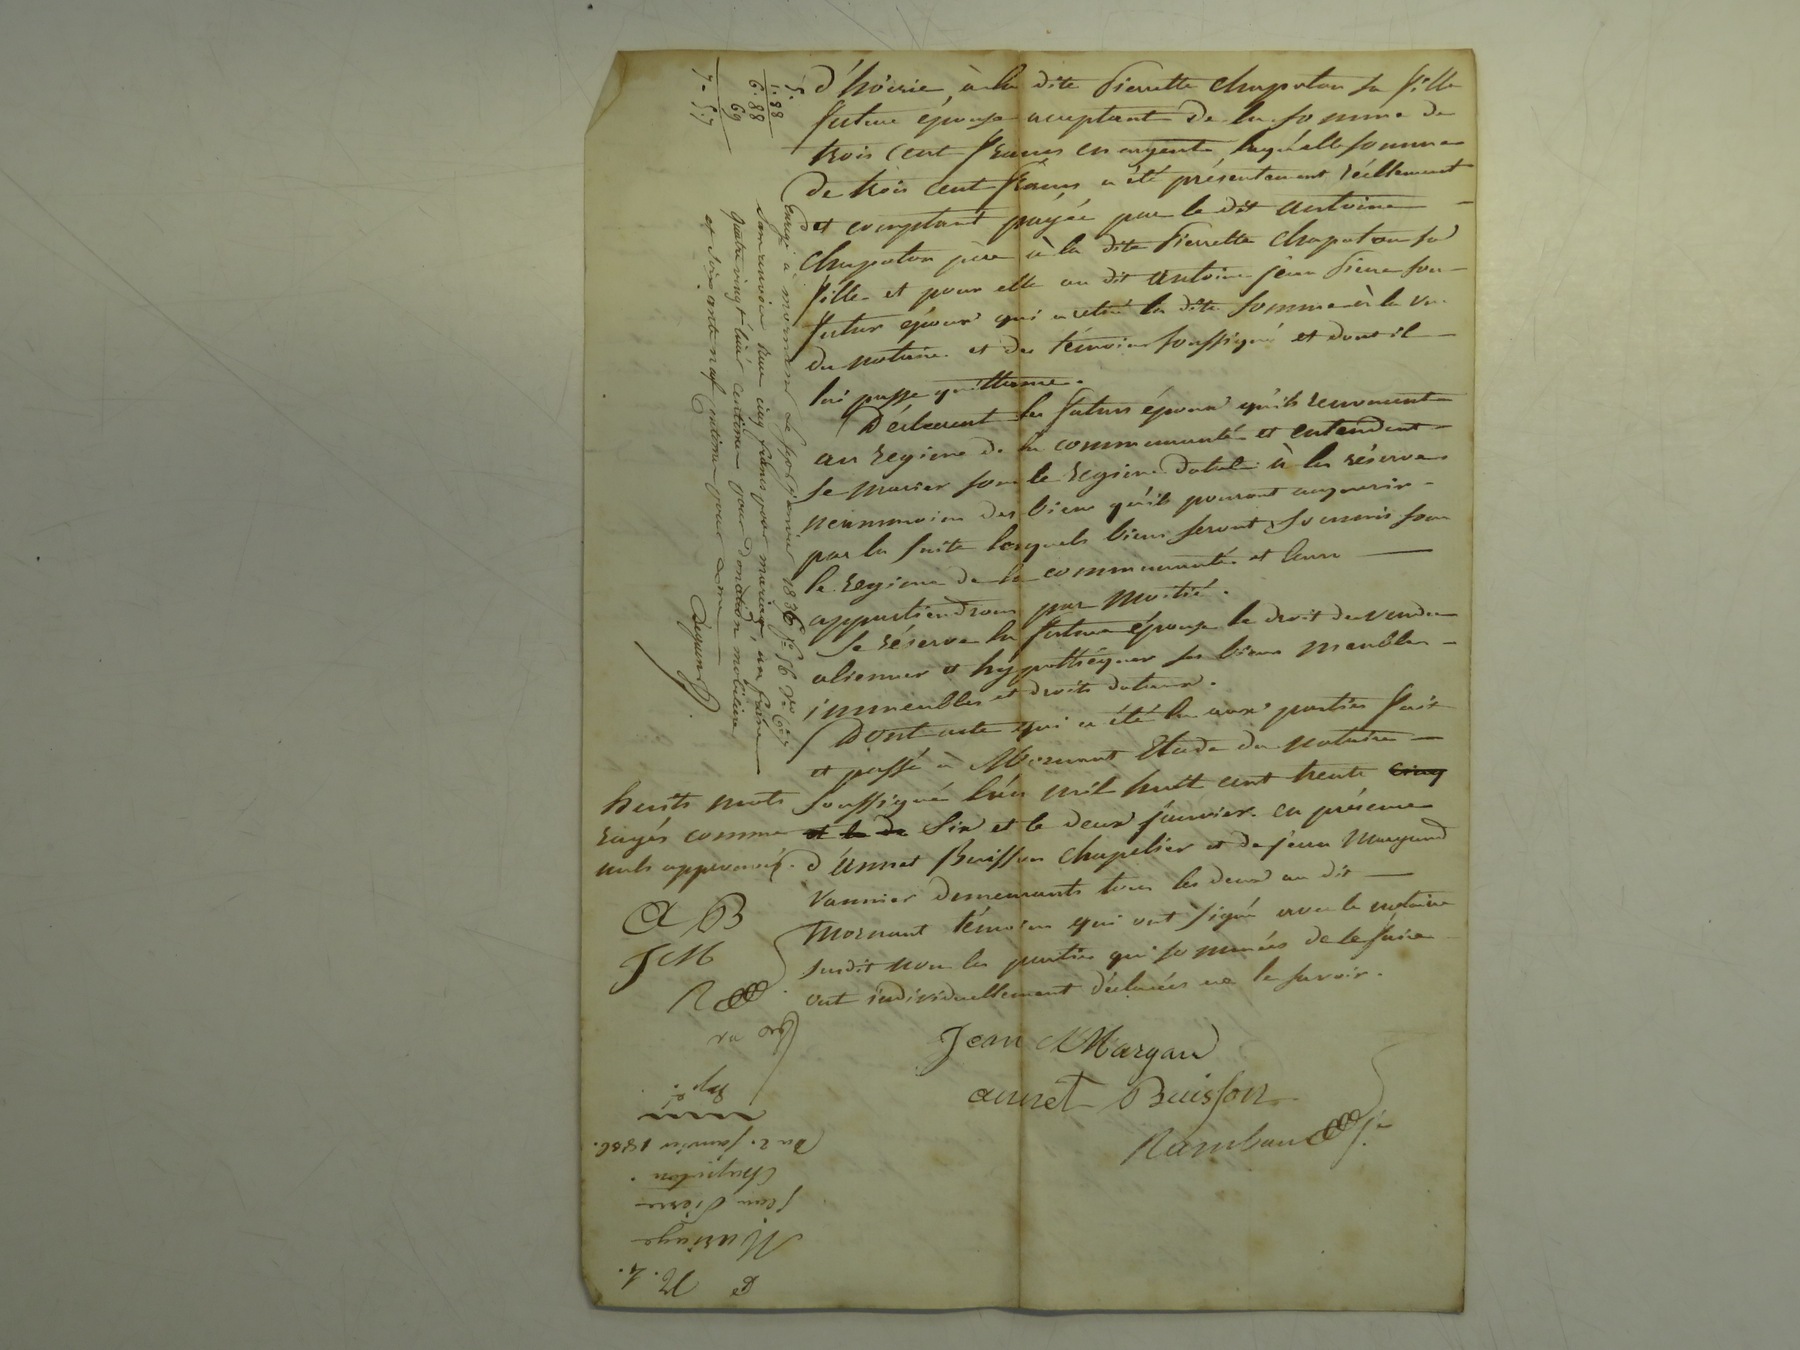 d'hoirie, à la dite Pierrette Chapoton sa fille
future épouse acceptant de la somme de
trois cent francs en argent, laquelle somme
de trois cent francs a été présentement réellement
et comptant payée par le dit Antoine
Chapoton père à la dite Pierrette Chapoton sa
fille et pour elle au dit Antoine Jean Pierre son
futur époux qui a retiré la dite somme à la vue
du notaire et des témoins soussignés et dont il
lui passe quittance.
Déclarent les futurs époux qu'ils renoncent
au régime de la communauté et entendent
se marier sous le régime dotal à la réserve
néanmoins des biens qu'ils pouront acquerir
par la suite lesquels biens seront soumis sous
le régime de la communauté et leurs
appartiendrons par moitié.
Se réserve la future épouse le droit de vendre
alienner et hypothéquer ses biens meubles
immeubles et droits dotaux.
Dont acte qui a été lu aux parties fait
et passé à Mornant Etude du notaire
soussigné l'an mil huit cent trente cinq
et le de six et le deux janvier. en présence
d'Annet Buisson chapelier et de Jean Margand
vannier demeurants tous les deux au dit
Mornant témoins qui ont signé avec le notaire
susdit non les parties qui sommées de le faire
ont individuellement déclarées ne le savoir.
Jean Margan
annet Buisson
Rambaud
huits mots
rayés comme
nuls approuvés.
A B
J M
R
Enrgé à mornant le six janvier 1836 fo 56
cinq francs pour mariage, un franc
quatre vingt huit centimes pour donation mobiliaire
et soixante neuf centimes pour dixme
5.
1.88
6.88
69
7.57
No 4.
Mariage
Jean Pierre
Chapoton.
Du 2 janvier 1836.